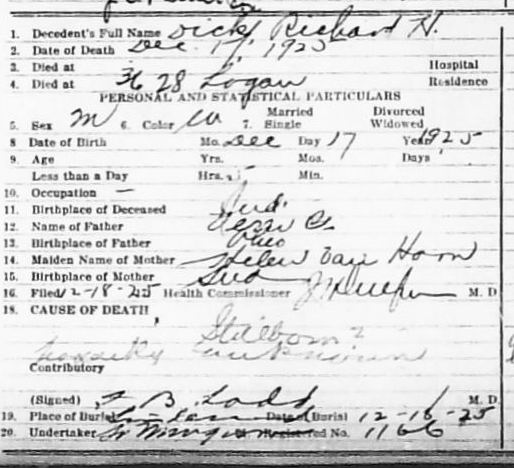 1. Decedent's Full Name Dick, Richard H.
2. Date of Death Dec. 17, 1925
3. Died at Hospital
4. Died at 3628 Logan Residence
PERSONAL AND STATISTICAL PARTICULARS
Married Divorced
5. Sex M 6. Color W 7. Single Widowed
8 Date of Birth Mo. Dec Day 17 Year 1925
9. Age Yrs. Mos. Days
Less than a Day Hrs. Min.
10. Occupation —
11. Birthplace of Deceased Ind.
12. Name of Father
13. Birthplace of Father Ohio
14. Maiden Name of Mother Helen Van Horn
15. Birthplace of Mother Ind
16. Filed 12-18-25 Health Commissioner M. D
18. CAUSE OF DEATH,
Stillborn
unknown
Contributory
(Signed) B. Ladd M. D.
19. Place of Burial Date of Burial 12-18-25
20. Undertaker Registered No. 1166